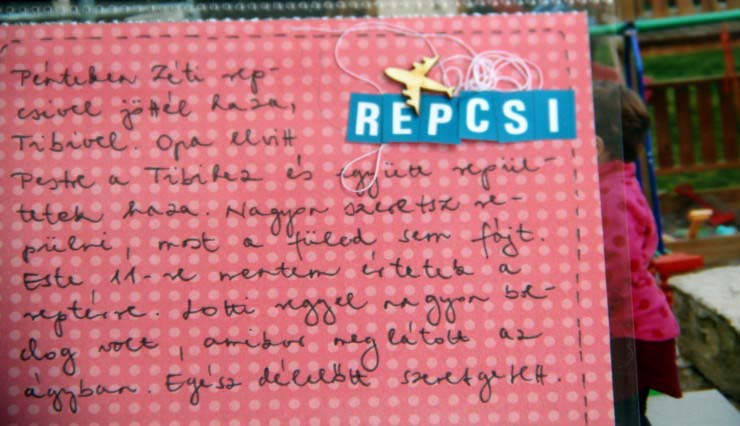 REPCSI
Pénteken Zéti rep-
csivel jöttél haza,
Tibivel. Opa elvitt
Pestre a Tibihez és együtt repül-
tetek haza. Nagyon szeretsz re-
pülni, most a füled sem fájt.
Este 11-re mentem értetek a
reptérre. Lotti reggel nagyon bol-
dog volt, amikor meglátott az
ágyban. Egész délelőtt szeretgetett.